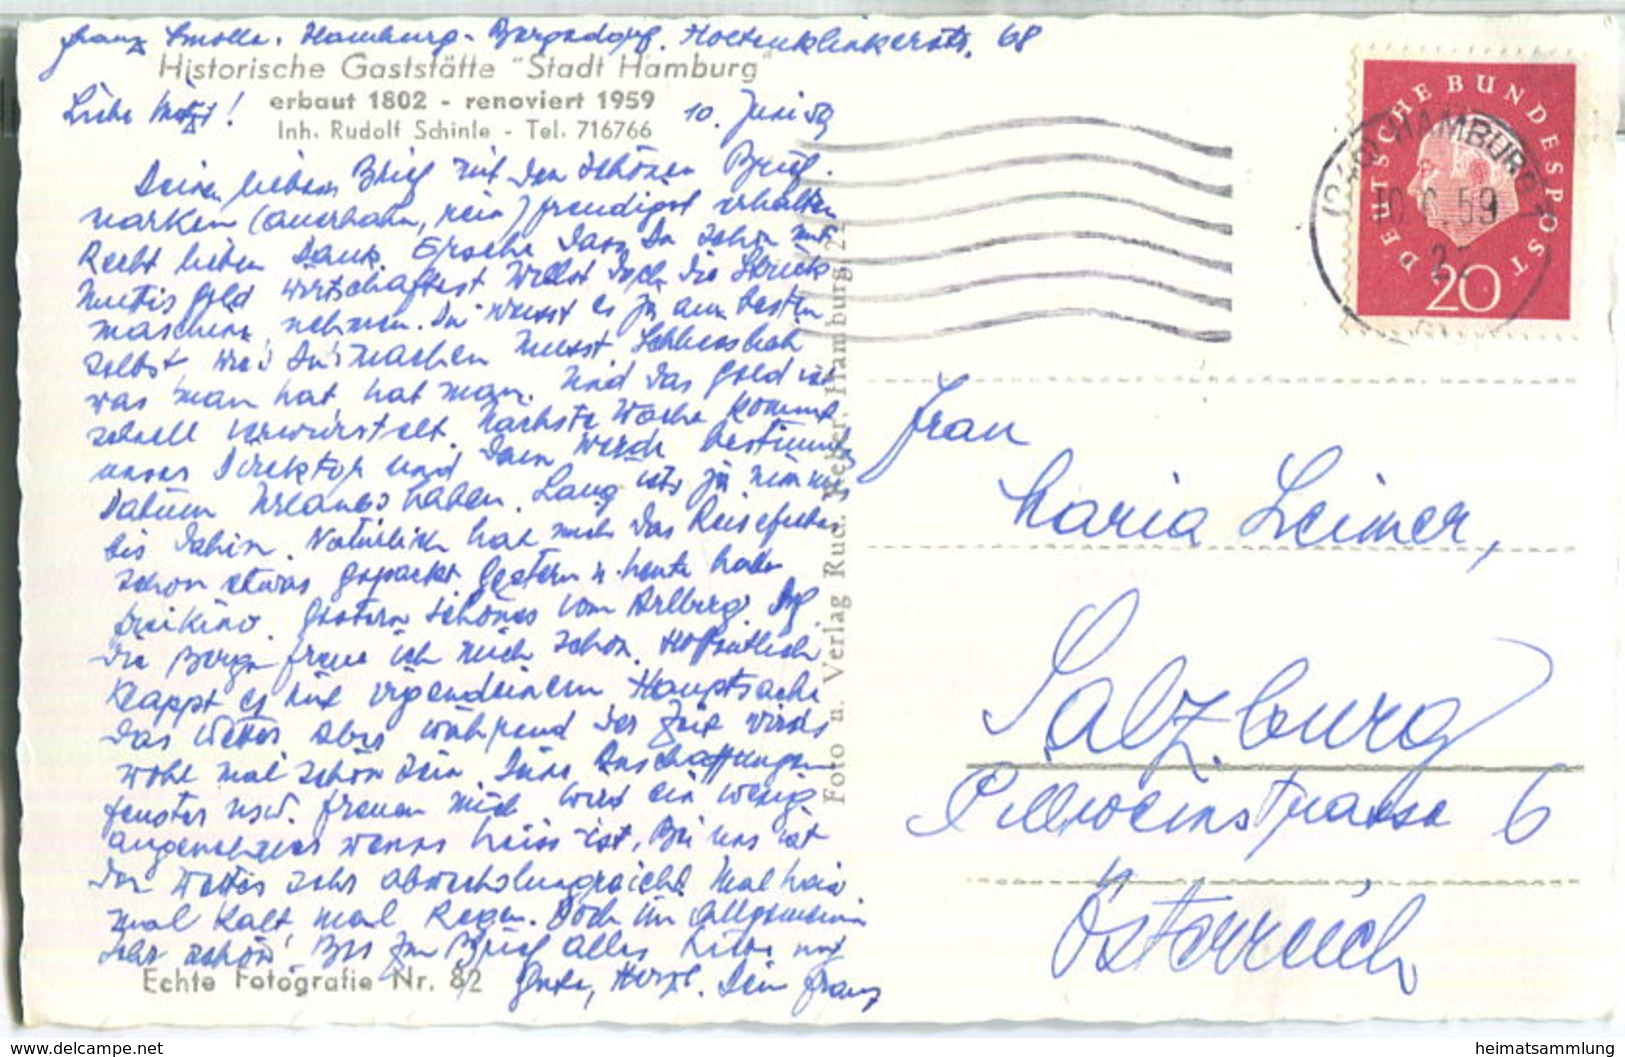 Hamburg-Bergedorf. Holtenklinkerstr. 68
Historische Gaststätte "Stadt Hamburg"
erbaut 1802 - renoviert 1959
Inh. Rudolf Schinle - Tel. 716766
Liebe
10. Juni 59
Deinen lieben Brief mit den schönen Brief.
marken (Auerhahn, rein) freudigst erhalten
Recht lieben Dank. Ersehe dass Du schon mit
Muttis Geld wirtschaftest Willst doch die Strick
maschine nehmen. Du weisst es ja am besten
selbst, was Du machen musst. Schliesslich
was man hat hat man. Und das Geld ist
schnell verwurstelt. Nächste Woche kommt
unser Direktor und dann werde bestimmt
Datum Urlaubs haben. Lang ists ja nimmer
bis dahin. Natürlich hat mich das Reisefieber
schon etwas gepackt Gestern u. heute
Gestern schönes vom Arlberg. Auf
die Berge freue ich mich schon. Hoffentlich
klappt es mit irgendeinem Hauptsache
das Wetter Aber während der Zeit wirds
wohl mal schön sein. Deine Anschaffungen
Fenster usw. freuen mich wird ein wenig
angenehmer wenns heiss ist. Bei uns ist
das Wetter sehr abwechslungsreich! Mal heiss
mal kalt mal Regen. Doch im Allgemeinen
sehr schön! Bis zum Brief alles Liebe und
Gute, Herzl. Dein Franz
Echte Fotografie Nr. 82
Foto u. Verlag Rud. Reher, Hamburg 22
DEUTSCHE BUNDESPOST
20
HAMBURG
10.6.59
Frau
Maria Leimer,
Salzburg
Pillweinstrasse 6
Österreich
www.delcampe.net
heimatsammlung